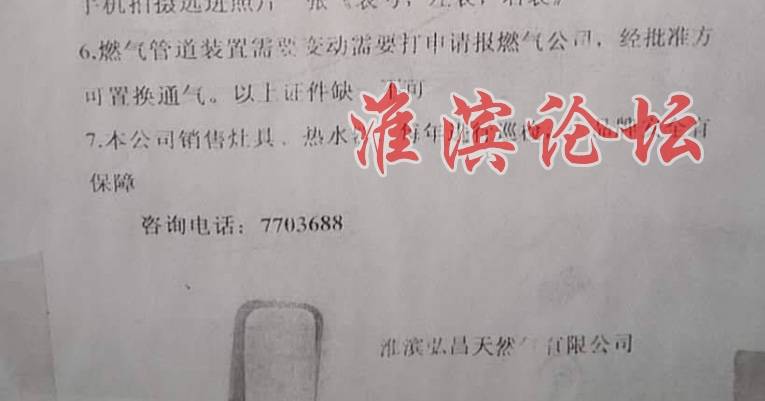 手机拍摄远近照片一张《表号，左表，右表》
6.燃气管道装置需要变动需要打申请报燃气公司，经批准方
可置换通气。以上证件缺一不可
7.本公司销售灶具、热水 每年进行巡检， 品牌安全有
保障
咨询电话：7703688
淮滨弘昌天然气有限公司
淮滨论坛